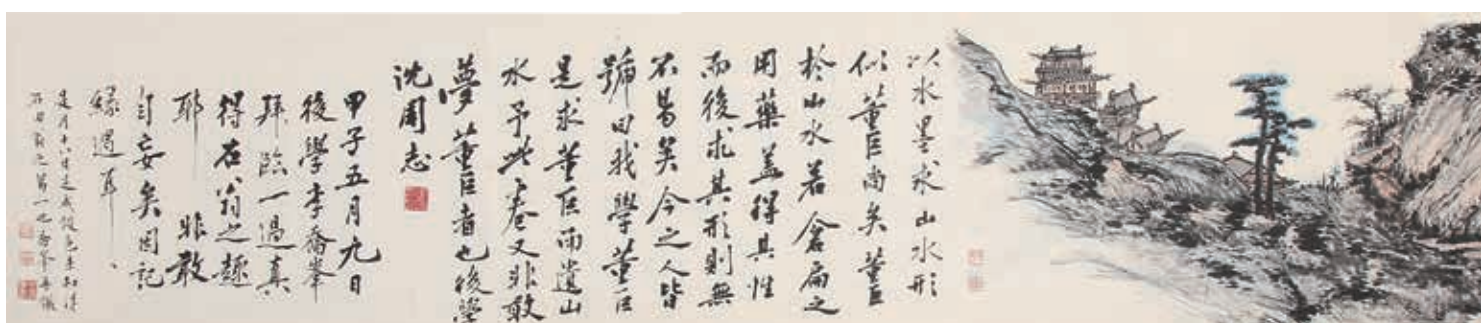 以水墨求山水形
似董巨尚矣董巨
於山水若倉扁之
用藥蓋得其性
而後求其形則無
不易矣今之人皆
號曰我學董巨
是求董巨而遺山
水予此卷又非敢
夢董巨者也後學
沈周志
甲子五月九日
後學李喬峯
拜臨一過真
得石翁之趣
耶 非敢
自妄矣因記
緣過耳